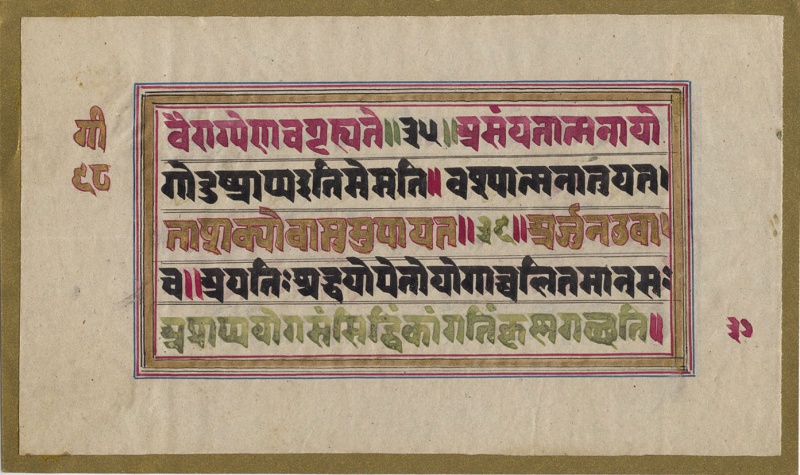 गी
वैराग्येणचगृह्यते॥३५॥असंयतात्मनायो
गोदुष्प्राप्यइतिमेमति॥वश्यात्मनातुयत
ताशक्योवाप्तुमुपायत॥३६॥अर्जुनउवा
च॥अयतिःश्रद्धयोपेतोयोगाच्चलितमानसः
अप्राप्ययोगसंसिद्धिंकांगतिंकृष्णगच्छति॥